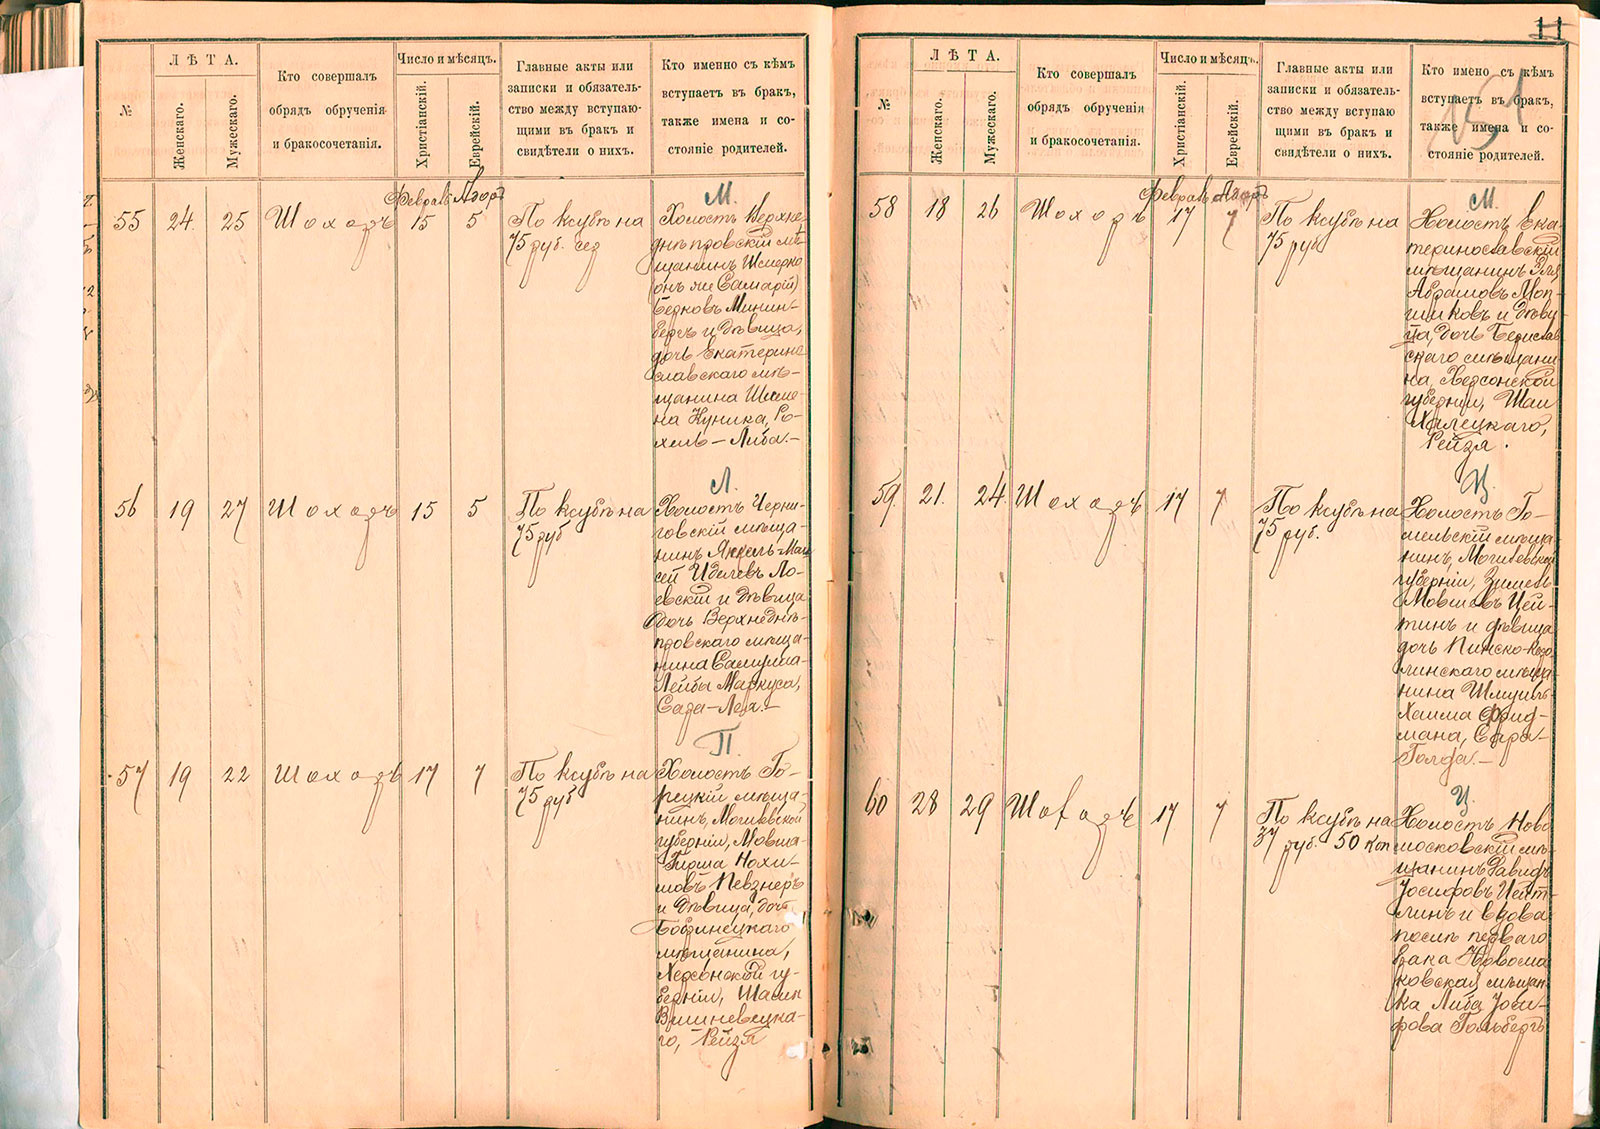 №
ЛѢТА.
Женскаго.
Мужескаго.
Кто совершалъ
обрядъ обрученія
и бракосочетанія.
Число и мѣсяцъ.
Христіанскій.
Еврейскій.
Главные акты или
записки и обязатель-
ство между вступаю-
щими въ бракъ и
свидѣтели о нихъ.
Кто именно съ кѣмъ
вступаетъ въ бракъ,
также имена и со-
стояніе родителей.
Февраль Адаръ
55 24. 25 Шохадъ 15 5 По ксубѣ на
75 руб. сер
М.
Холостъ Верхне-
днѣпровскій мѣ-
щанинъ Шмерко
(онъ же Самарій)
Берковъ Минин-
бергъ и дѣвица,
дочь Екатерино
славскаго мѣ-
щанина Шиме-
на Куника, Ро-
хель-Либа.-
56 19 27 Шохадъ 15 5 По ксубѣ на
75 руб
Л.
Холостъ Черни-
говскій мѣща-
нинъ Янкель-Мои
сей Иделевъ Ло-
евскій и дѣвица
дочь Верхнеднѣ-
провскаго мѣща-
нина Самуила-
Лейбы Маркуса,
Сара-Лея.-
57 19 22 Шохадъ 17 7 По ксубѣ на
75 руб
П.
Холостъ Го-
рецкій мѣща-
нинъ, Могилевской
губерніи, Мовша-
Гирша Нохи-
мовъ Певзнеръ
и дѣвица, дочь
Бобринецкаго
мѣщанина,
Херсонской гу-
берніи,
Вишневецка-
го, Рейзя
11
151
№
ЛѢТА.
Женскаго.
Мужескаго.
Кто совершалъ
обрядъ обрученія
и бракосочетанія.
Число и мѣсяцъ.
Христіанскій.
Еврейскій.
Главные акты или
записки и обязатель-
ство между вступаю
щими въ бракъ и
свидѣтели о нихъ.
Кто имено съ кѣмъ
вступаетъ въ бракъ,
также имена и со-
стояніе родителей.
Февраль Адаръ
58 18 26 Шохадъ 17 7 По ксубѣ на
75 руб
М.
Холостъ Ека-
теринославскій
мѣщанинъ
Абрамовъ Моп-
шиковъ и дѣви
ца, дочь Берислав
скаго мѣщани-
на, Херсонской
губерніи, Шаи
Халецкаго,
Рейзя.
59. 21. 24 Шохадъ 17 7 По ксубѣ на
75 руб.
Ц.
Холостъ Го-
мельскій мѣща-
нинъ, Могилевской
губерніи, Зимель
Мовшевъ Цей-
тинъ и дѣвица
дочь Пинско-Каро
линскаго мѣща-
нина Шмуилъ-
Хаима Фрид-
мана, Сара-
Голда.-
60 28 29 Шохадъ 17 7 По ксубѣ на
37 руб. 50 коп
Ц.
Холостъ Ново
московскій мѣ-
щанинъ Давидъ
Іосифовъ Цейт-
линъ и вдова
послѣ перваго
брака Новомо
ковская мѣщан-
ка Либа Іоси-
фова Гольбергъ